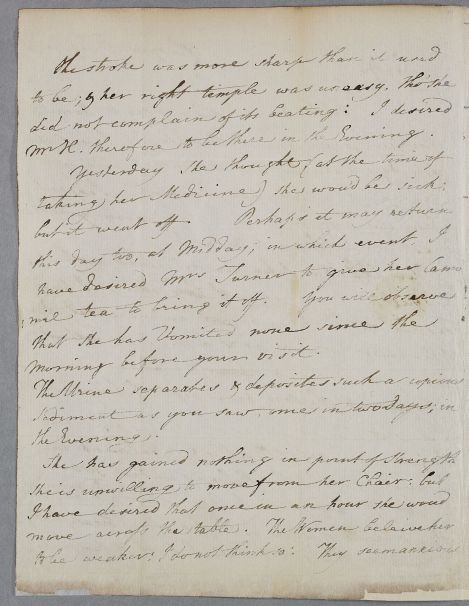 the stroke was more sharp than it used
to be; & her right temple was uneasy. tho' she
did not complain of its beating: I desired
Mr H. therefore to be there in the Evening.
Yesterday she thought (at the time of
taking her Medicine) she would be sick;
but it went off. Perhaps it may return
this day too, at Midday; in which event, I
have desired Mrs Turner to give her Camo
mil tea to bring it off. You will observe
that she has Vomited none since the
morning before your visit.
The Urine separates & deposites such a copious
sediment as you saw, once in two days; in
the Evening.
She has gained nothing in point of strength
she is unwilling to move from her Chair: but
I have desired that once in an hour she woud
move across the table. The Women beleive her
to be weaker: I do not think so: They seem anxious